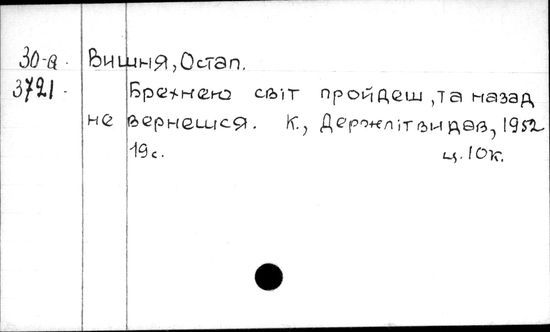 30-а. Вишня, Остап.
3721. Брехнею світ пройдеш, та назад
не вернешся. К., Держлітвидав, 1952
19 с. ц. 10 к.